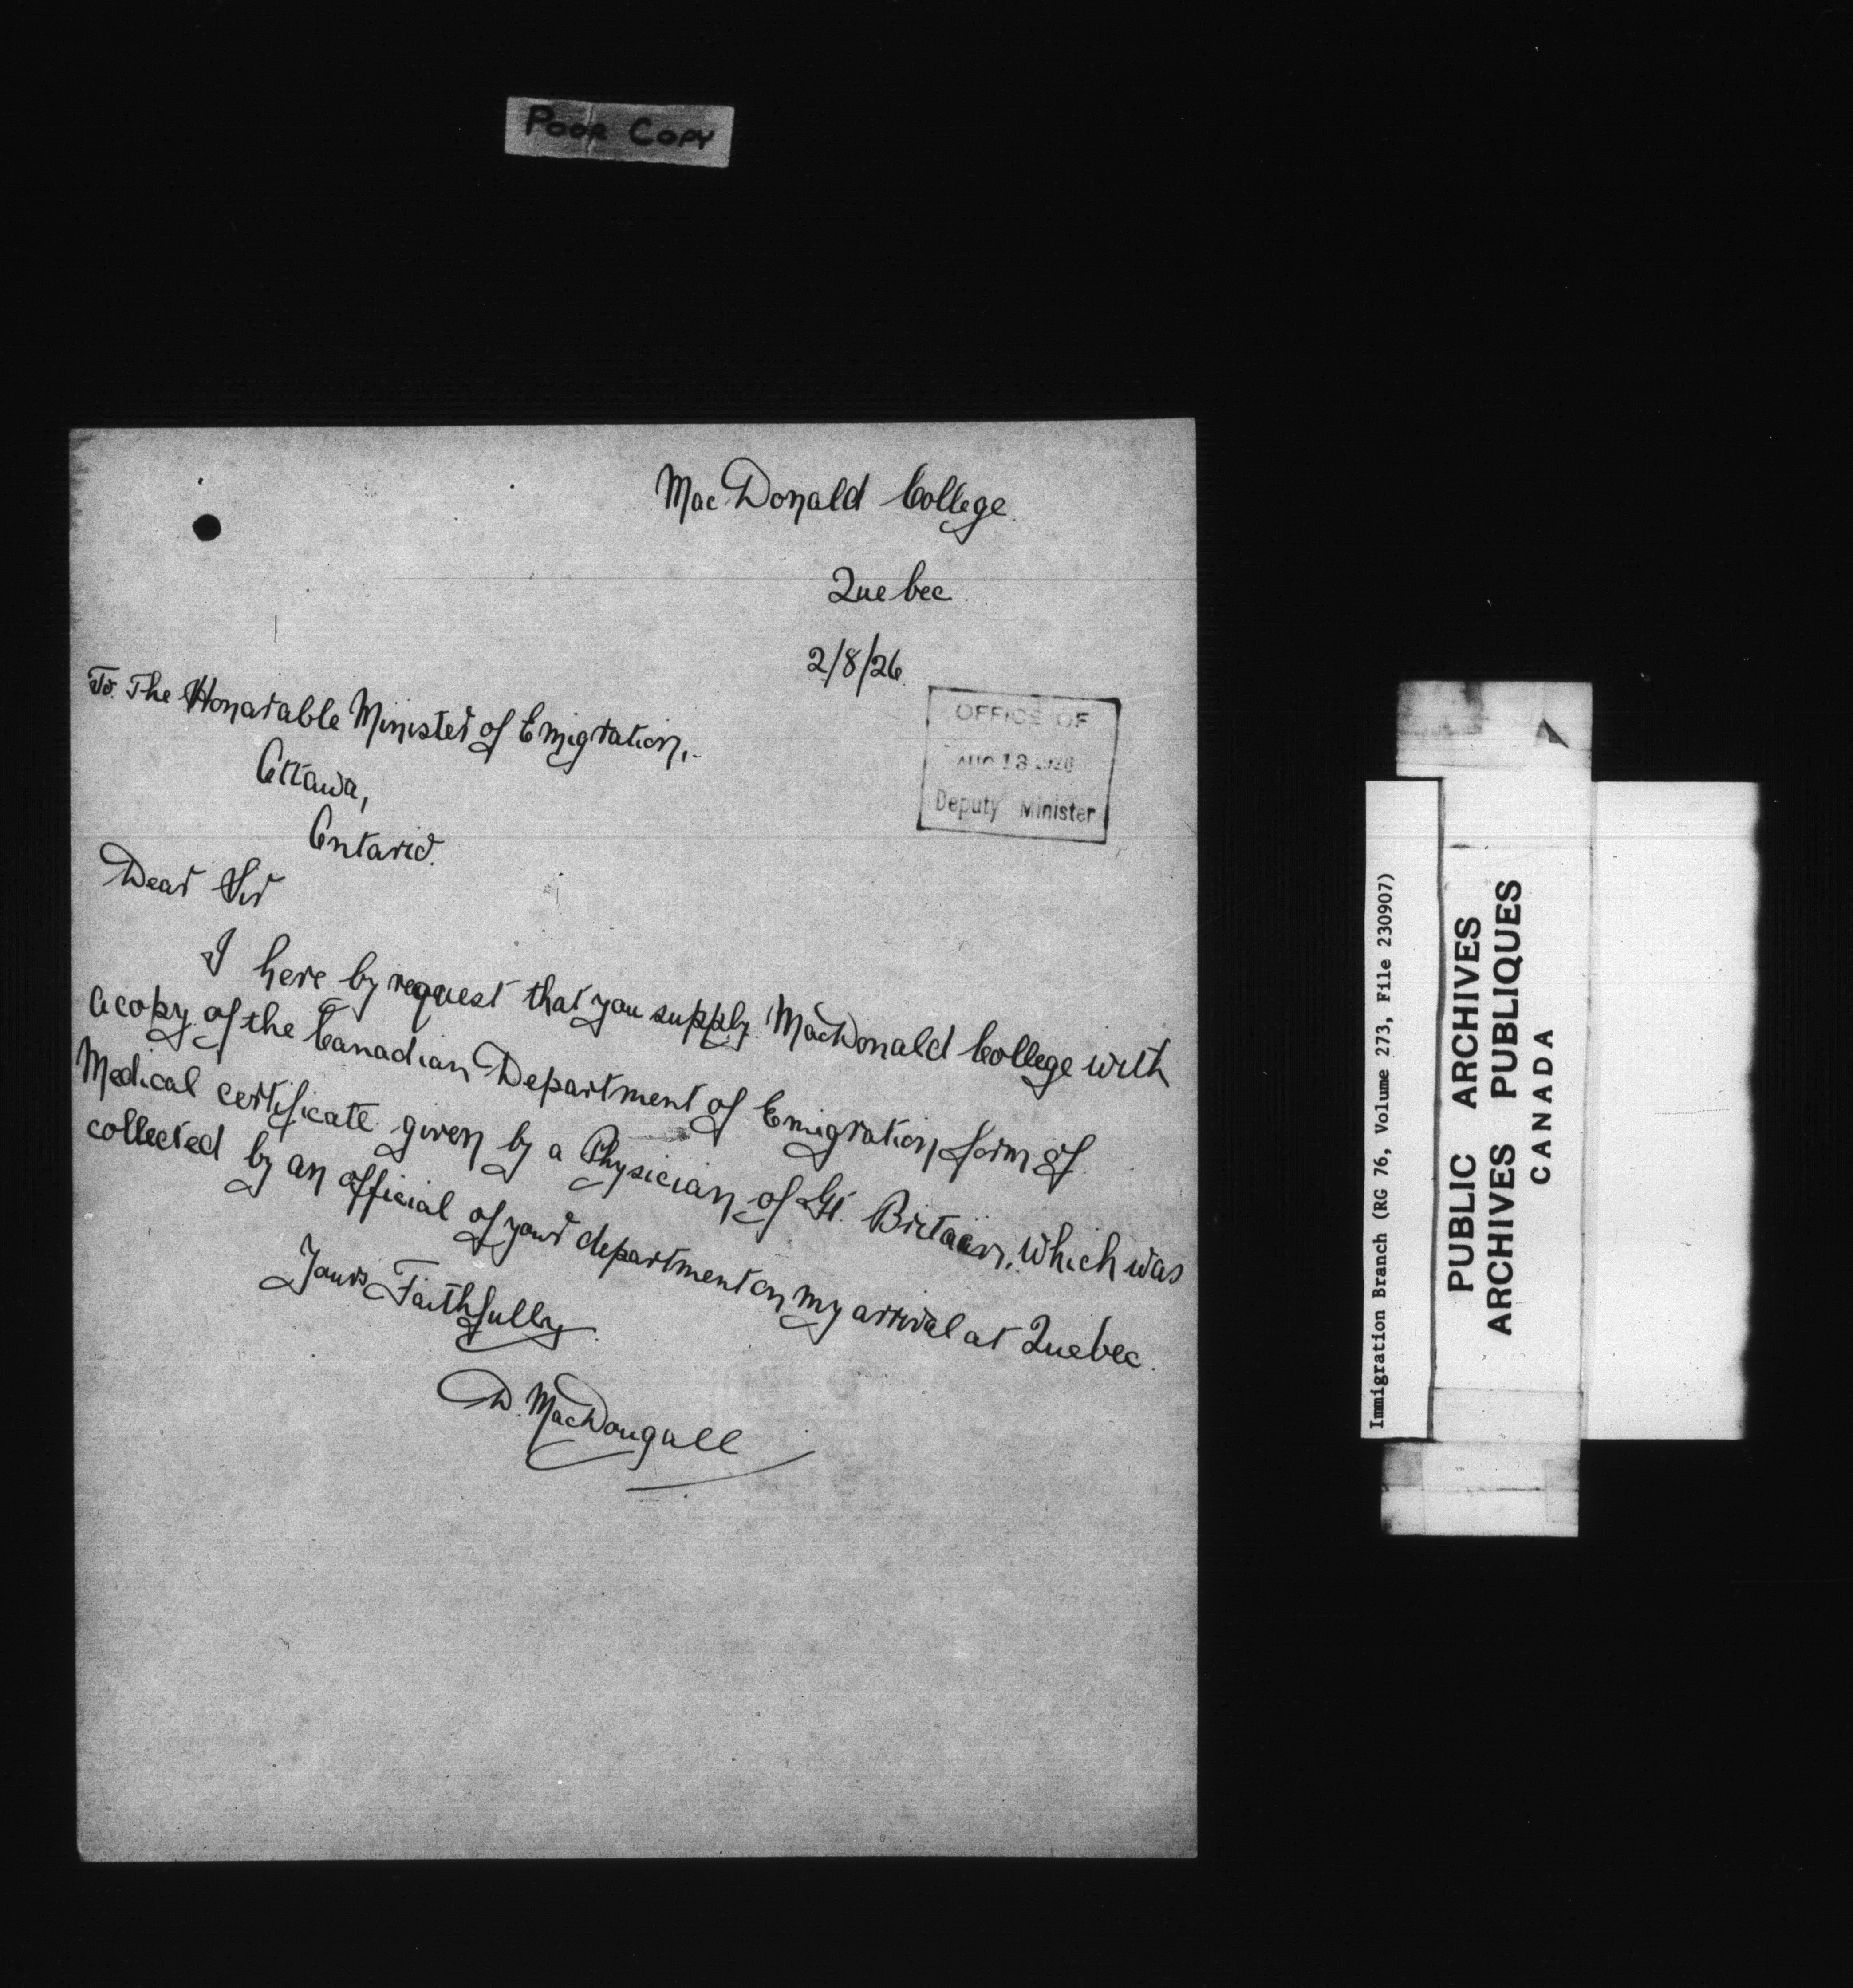 POOR COPY
MacDonald College.
Quebec.
2/8/26.
To. The Honarable Minister of Emigration,.
Ottawa,
Ontario.
Dear Sir
I here by request that you supply MacDonald College with
a copy of the Canadian Department of Emigration form of
Medical certificate given by a Physician of Gt. Birtain, which was
collected by an official of your department on my arrival at Quebec.
Yours Faithfully
D. MacDougall
OFFICE OF
AUG 13 1926
Deputy Minister
Immigration Branch (RG 76, Volume 273, File 230907)
PUBLIC ARCHIVES
ARCHIVES PUBLIQUES
CANADA